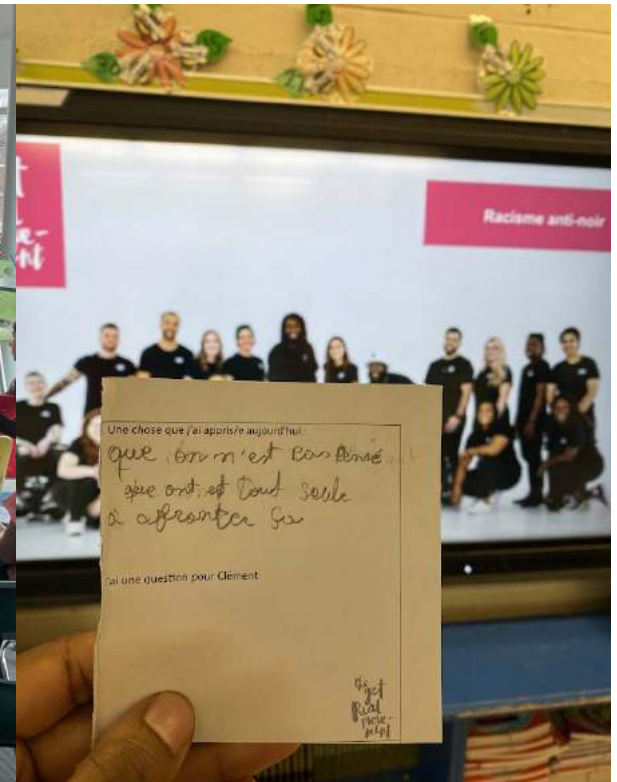 Racisme anti-noir
Une chose que j'ai appris/e aujourd'hui :
que on n'est pas
que ont et tout seule
a afronter ça
J'ai une question pour Clément
the
get
Real
move-
ment